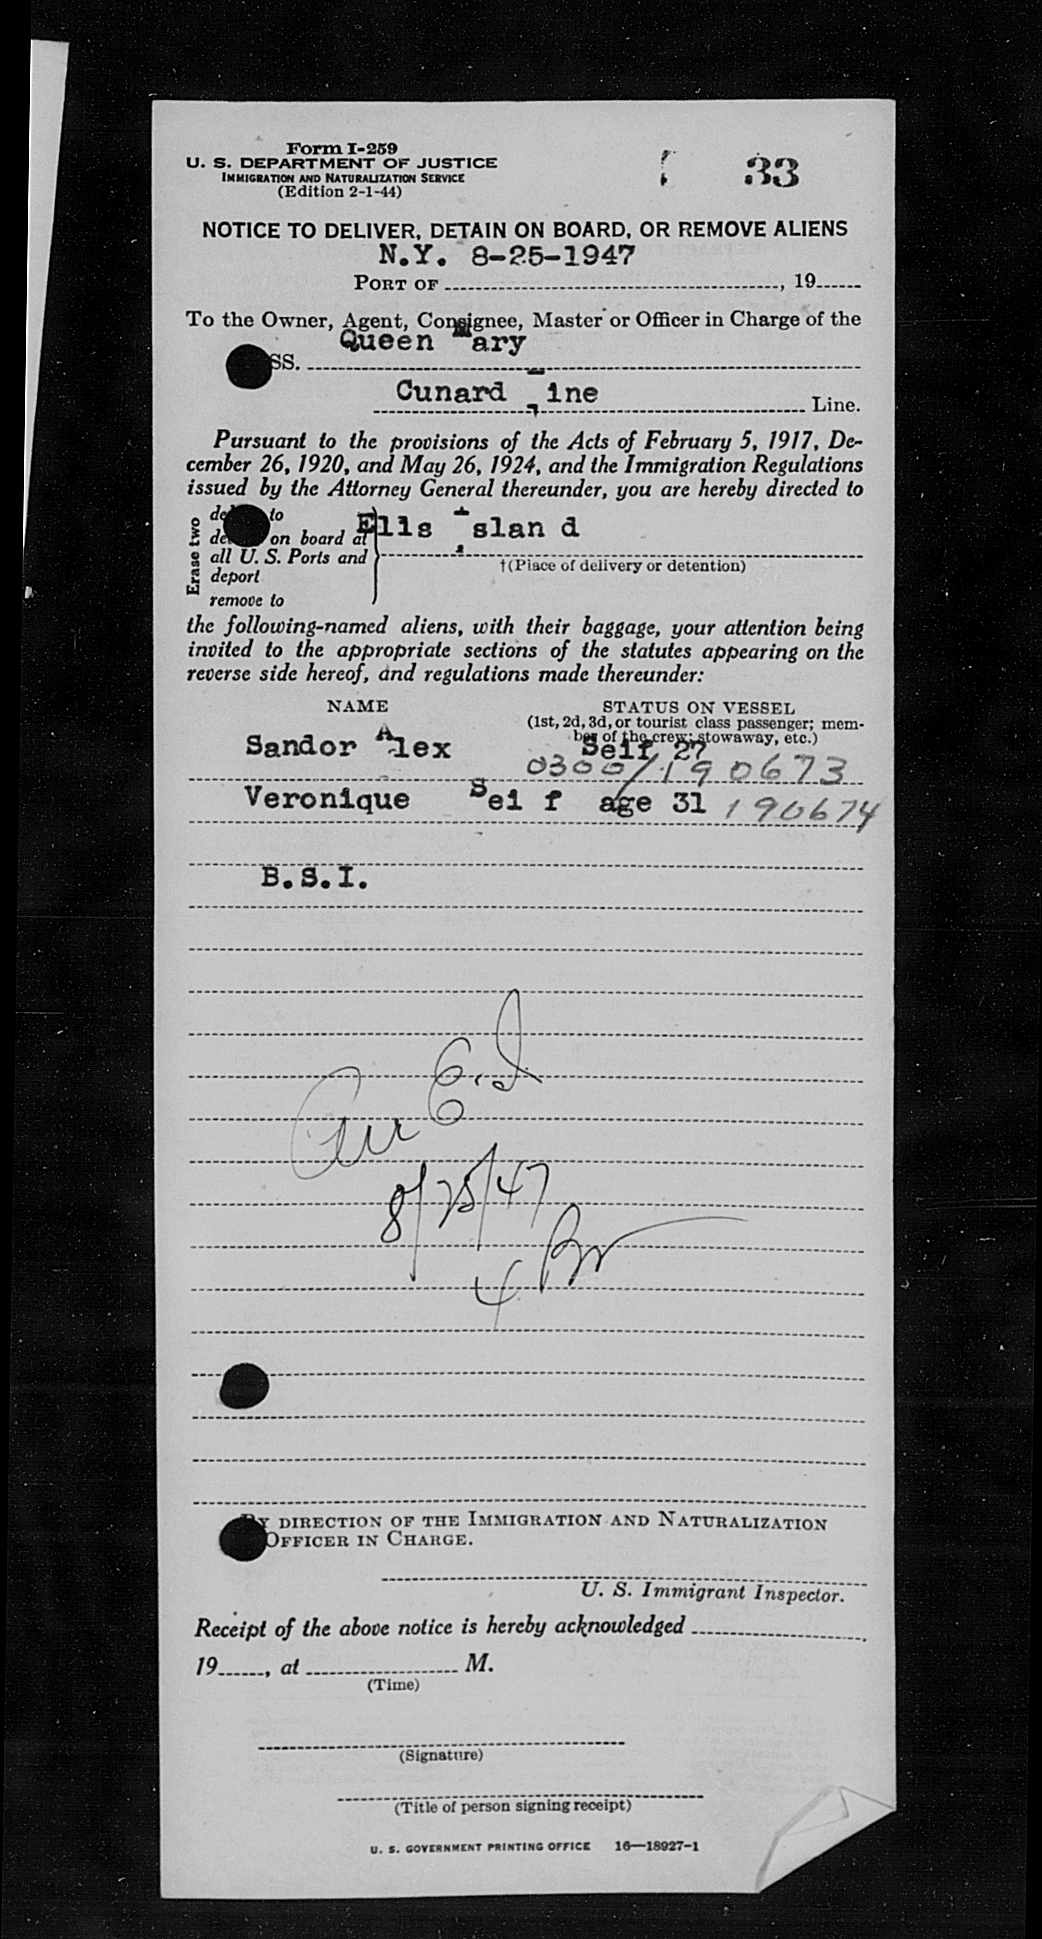 Form I-259
U. S. DEPARTMENT OF JUSTICE
IMMIGRATION AND NATURALIZATION SERVICE
(Edition 2-1-44)
33
NOTICE TO DELIVER, DETAIN ON BOARD, OR REMOVE ALIENS
N.Y. 8-25-1947
PORT OF , 19
To the Owner, Agent, Consignee, Master or Officer in Charge of the
Queen Mary
SS.
Cunard Line
Line.
Pursuant to the provisions of the Acts of February 5, 1917, De-
cember 26, 1920, and May 26, 1924, and the Immigration Regulations
issued by the Attorney General thereunder, you are hereby directed to
Erase two
to
on board at
all U. S. Ports and
deport
remove to
Ellis Island
†(Place of delivery or detention)
the following-named aliens, with their baggage, your attention being
invited to the appropriate sections of the statutes appearing on the
reverse side hereof, and regulations made thereunder:
NAME STATUS ON VESSEL
(1st, 2d, 3d, or tourist class passenger; mem-
ber of the crew; stowaway, etc.)
Sandor Alex Seif 27
0300/190673
Veronique Sei f age 31 190674
B.S.I.
E.I
8/25/47
BY DIRECTION OF THE IMMIGRATION AND NATURALIZATION
OFFICER IN CHARGE.
U. S. Immigrant Inspector.
Receipt of the above notice is hereby acknowledged
19 , at M.
(Time)
(Signature)
(Title of person signing receipt)
U. S. GOVERNMENT PRINTING OFFICE 16—18927-1